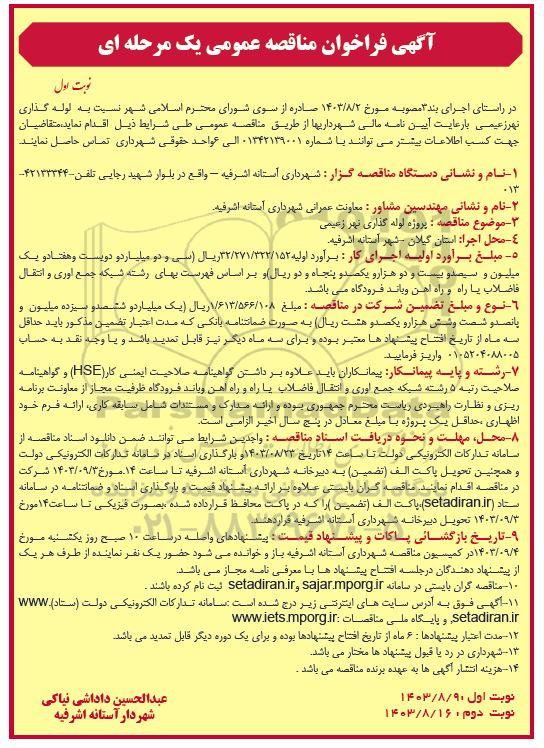 آگهی فراخوان مناقصه عمومی یک مرحله ای
نوبت اول
در راستای اجرای بند۳مصوبه مورخ ۱۴۰۳/۸/۲ صادره از سوی شورای محترم اسلامی شهر نسبت به لوله گذاری
نهرزعیمی بارعایت آیین نامه مالی شهرداریها از طریق مناقصه عمومی طی شرایط ذیل اقدام نماید،متقاضیان
جهت کسب اطلاعات بیشتر می توانند با شماره ۰۱۳۴۲۱۳۹۰۰۱ الی ۶واحد حقوقی شهرداری تماس حاصل نمایند.
۱-نام و نشانی دستگاه مناقصه گزار : شهرداری آستانه اشرفیه – واقع در بلوار شهید رجایی تلفن-۴۲۱۳۳۳۴۴-
۰۱۳
۲-نام و نشانی مهندسین مشاور : معاونت عمرانی شهرداری آستانه اشرفیه.
۳-موضوع مناقصه : پروژه لوله گذاری نهر زعیمی
۴-محل اجرا: استان گیلان -شهر آستانه اشرفیه.
۵- مبلغ برآورد اولیه اجرای کار : برآورد اولیه۳۲/۲۷۱/۳۲۲/۱۵۲ریال (سی و دو میلیاردو دویست وهفتادو یک
میلیون و سیصدو بیست و دو هزارو یکصدو پنجاه و دو ریال)و بر اساس فهرست بهای رشته شبکه جمع آوری و انتقال
فاضلاب یا راه و راه آهن وباند فرودگاه می باشد.
۶-نوع و مبلغ تضمین شرکت در مناقصه : مبلغ ۱/۶۱۳/۵۶۶/۱۰۸ریال (یک میلیاردو ششصدو سیزده میلیون و
پانصدو شصت وشش هزارو یکصدو هشت ریال) به صورت ضمانتنامه بانکی که مدت اعتبار تضمین مذکور باید حداقل
سه ماه از تاریخ افتتاح پیشنهاد ها معتبر بوده و برای سه ماه دیگر نیز قابل تمدید باشد و یا وجه نقد به حساب
۰۱۰۵۲۰۴۰۸۸۰۰۵ واریز فرمایید.
۷-رشته و پایه پیمانکار: پیمانکاران باید علاوه بر داشتن گواهینامه صلاحیت ایمنی کار(HSE) و گواهینامه
صلاحیت رتبه ۵ رشته شبکه جمع آوری و انتقال فاضلاب یا راه و راه آهن وباند فرودگاه ظرفیت مجاز از معاونت برنامه
ریزی و نظارت راهبردی ریاست محترم جمهوری بوده و ارائه مدارک و مستندات شامل سابقه کاری، ارائه فرم خود
اظهاری ،حداقل یک پروژه با مبلغ معادل در پنج سال اخیر الزامی است.
۸-محل، مهلت و نحوه دریافت اسناد مناقصه : واجدین شرایط می توانند ضمن دانلود اسناد مناقصه از
سامانه تدارکات الکترونیکی دولت تا ساعت ۱۴تاریخ ۱۴۰۳/۰۸/۲۳و بارگذاری اسناد در سامانه تدارکات الکترونیکی دولت
و همچنین تحویل پاکت الف (تضمین) به دبیرخانه شهرداری آستانه اشرفیه تا ساعت ۱۴مورخ۱۴۰۳/۰۹/۳ شرکت
در مناقصه اقدام نمایند. مناقصه گران بایستی علاوه بر ارائه پیشنهاد قیمت و بارگذاری اسناد و ضمانتنامه در سامانه
ستاد (setadiran.ir)،پاکت الف (تضمین )را که در پاکت محافظ قرارداده شده ،بصورت فیزیکی تا ساعت۱۴مورخ
۱۴۰۳/۰۹/۳ تحویل دبیرخانه شهرداری آستانه اشرفیه قراردهند.
۹-تاریخ بازگشائی پاکات و پیشنهاد قیمت : پیشنهادهای واصله درساعت ۱۰ صبح روز یکشنبه مورخ
۱۴۰۳/۰۹/۴در کمیسیون مناقصه شهرداری آستانه اشرفیه باز و خوانده می شود حضور یک نفر نماینده از طرف هر یک
از پیشنهاد دهندگان درجلسه افتتاح پیشنهاد ها با معرفی نامه مجاز می باشد.
۱۰-مناقصه گران بایستی در سامانه sajar.mporg.ir وsetadiran.ir ثبت نام کرده باشند .
۱۱-آگهی فوق به آدرس سایت های اینترنتی زیر درج شده است :سامانه تدارکات الکترونیکی دولت (ستاد).www
setadiran.ir, و پایگاه ملی مناقصات :www.iets.mporg.ir
۱۲-مدت اعتبار پیشنهادها : ۶ ماه از تاریخ افتتاح پیشنهادها بوده و برای یک دوره دیگر قابل تمدید می باشد.
۱۳-شهرداری در رد یا قبول پیشنهاد ها مختار می باشد.
۱۴-هزینه انتشار آگهی ها به عهده برنده مناقصه می باشد .
نوبت اول :۱۴۰۳/۸/۹
نوبت دوم :۱۴۰۳/۸/۱۶
عبدالحسین داداشی نیاکی
شهردار آستانه اشرفیه